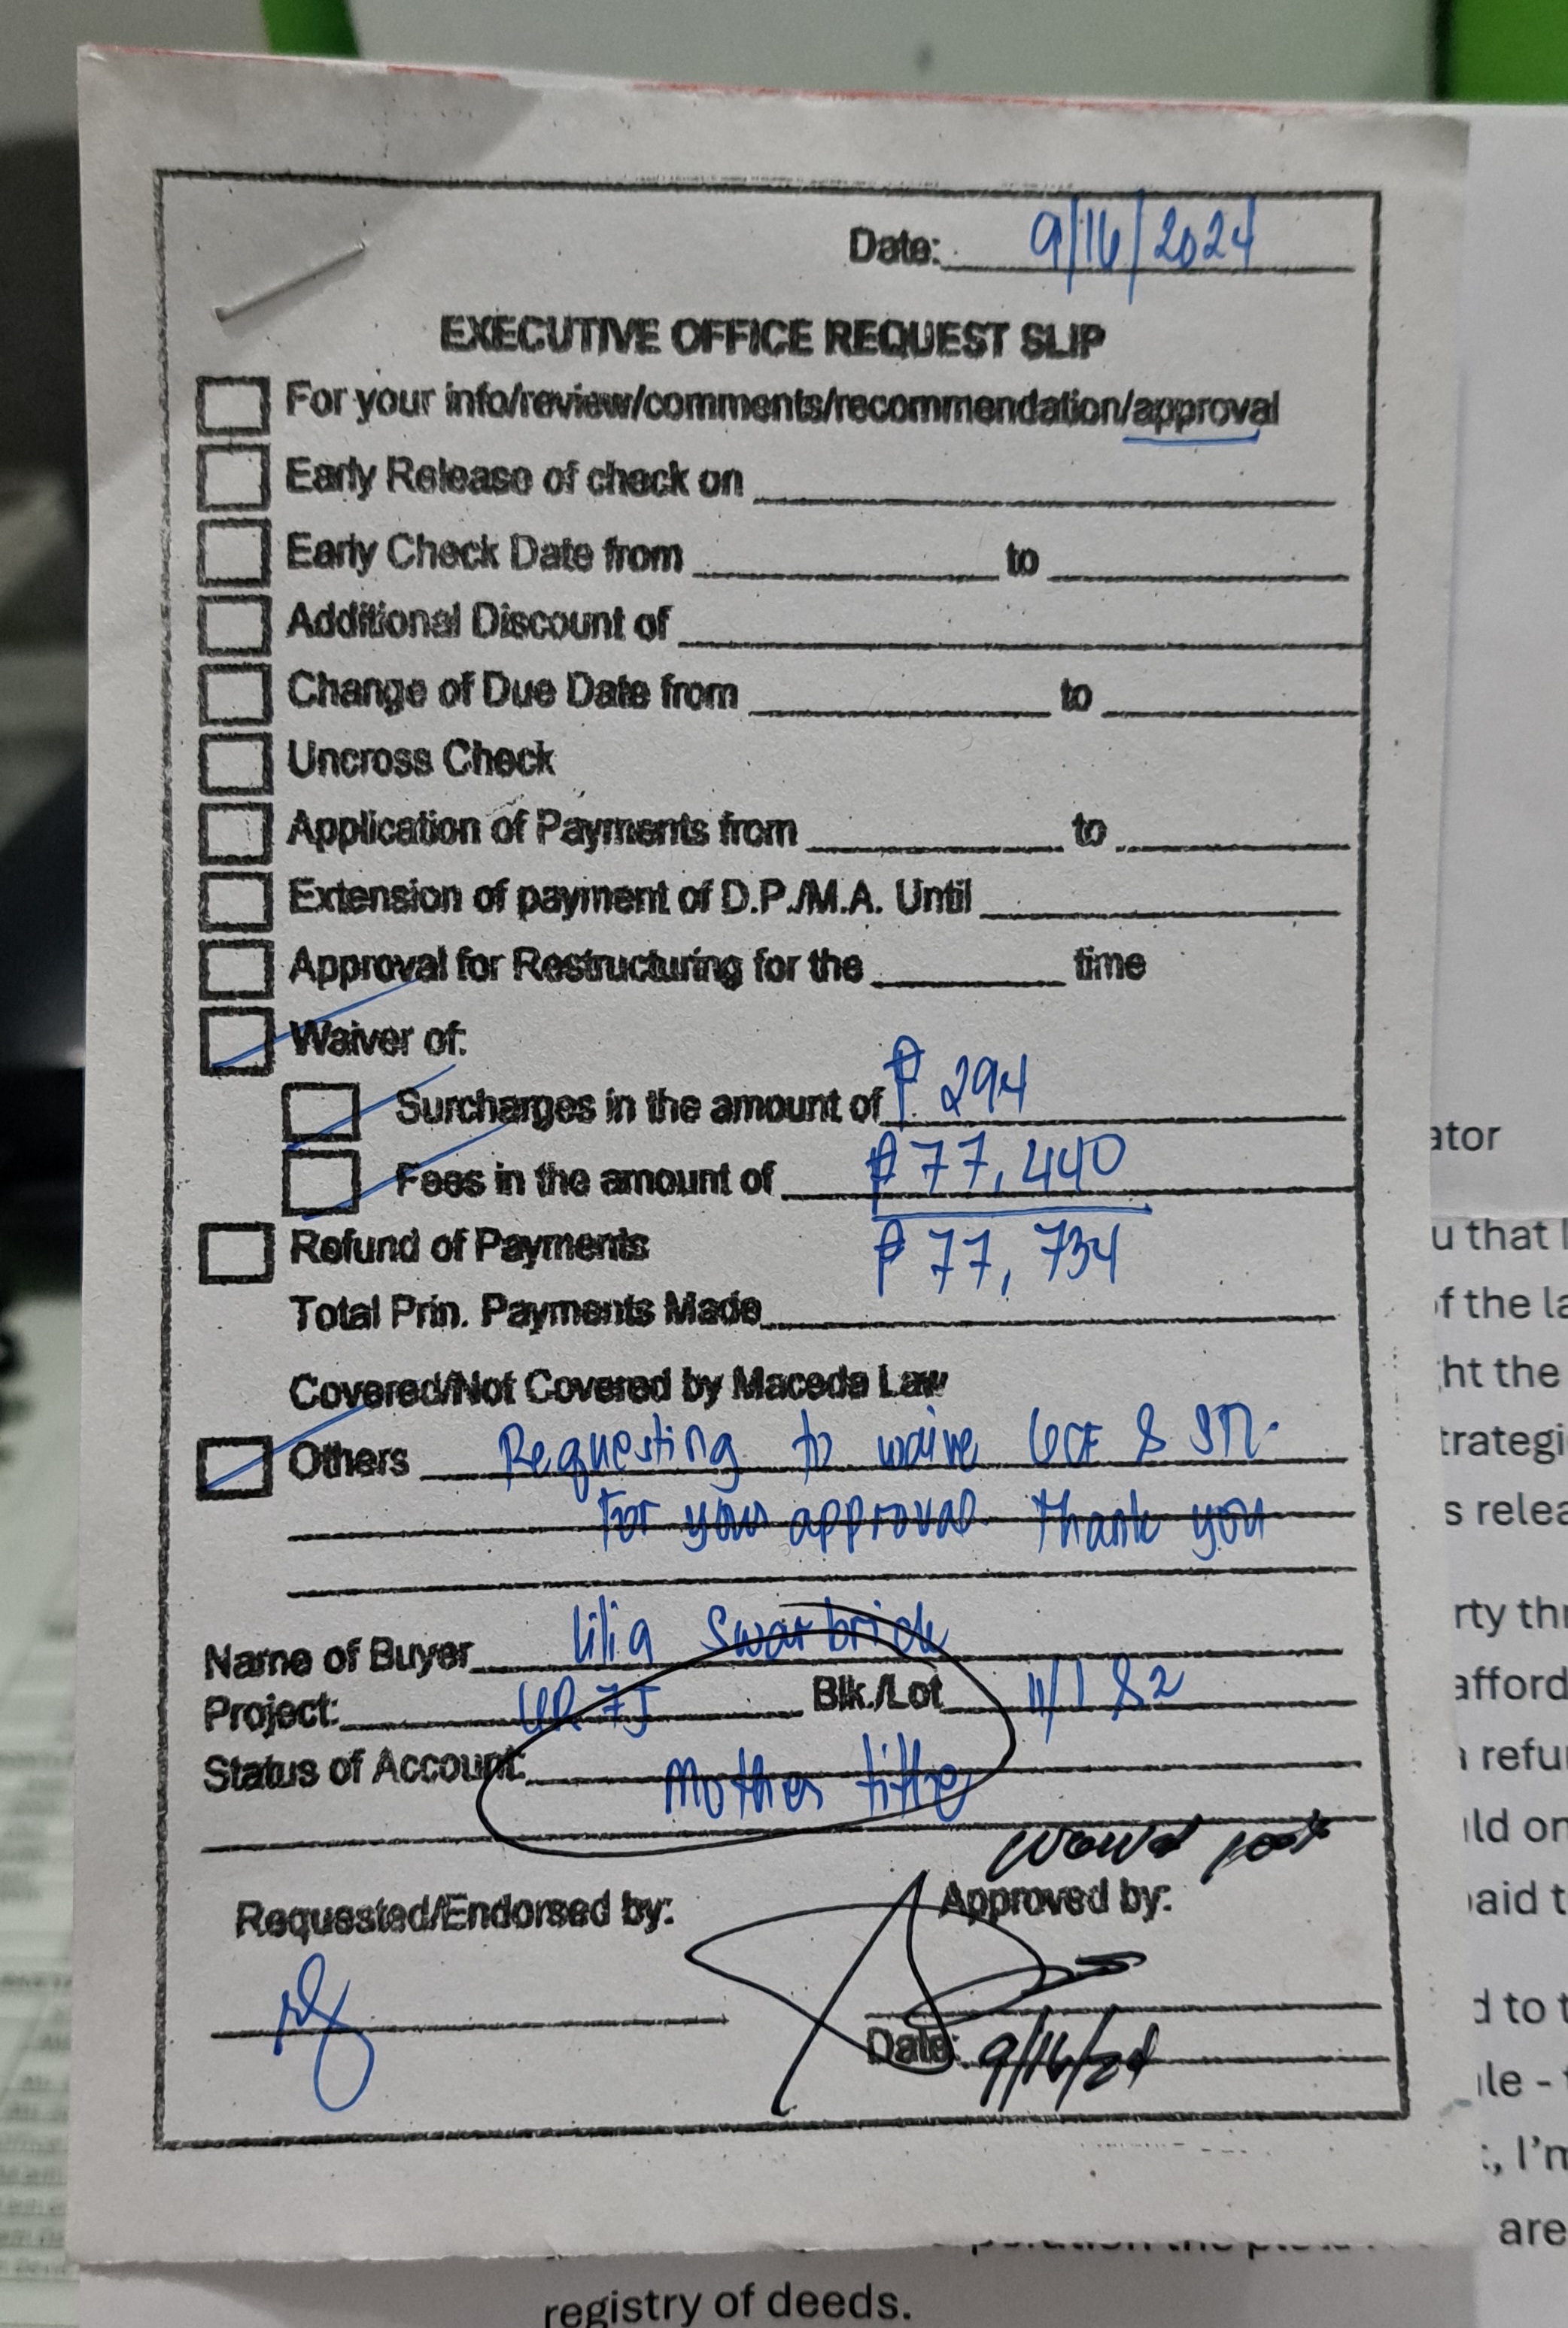 Date: 9/16/2024
EXECUTIVE OFFICE REQUEST SLIP
For your info/review/comments/recommendation/approval
Early Release of check on
Early Check Date from to
Additional Discount of
Change of Due Date from to
Uncross Check
Application of Payments from to
Extension of payment of D.P./M.A. Until
Approval for Restructuring for the time
Waiver of:
Surcharges in the amount of ₱ 294
Fees in the amount of ₱ 77,440
₱ 77,734
Refund of Payments
Total Prin. Payments Made
Covered/Not Covered by Maceda Law
Others Requesting to waive &
For your approval. Thank you
Name of Buyer Lilia Swarbrick
Project: Blk./Lot 11/1 & 2
Status of Account: Mother title
Requested/Endorsed by:
Approved by:
Date: 9/16/24
ator
u that
f the
ht the
s
rty
d to
, I'm
are
registry of deeds.